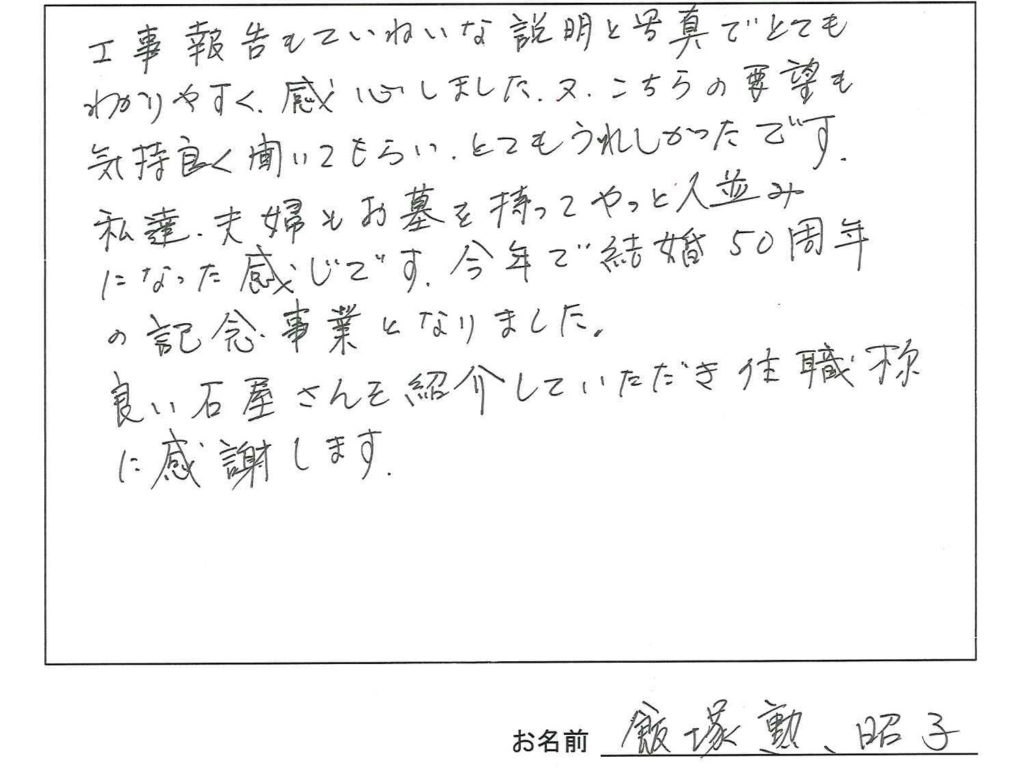 工事報告もていねいな説明と写真でとても
わかりやすく、感心しました、又、こちらの要望も
気持良く聞いてもらい、とてもうれしかったです。
私達、夫婦もお墓を持ってやっと人並み
になった感じです。今年で結婚50周年
の記念事業となりました。
良い石屋さんを紹介していただき住職様
に感謝します。
お名前 飯塚勲、昭子